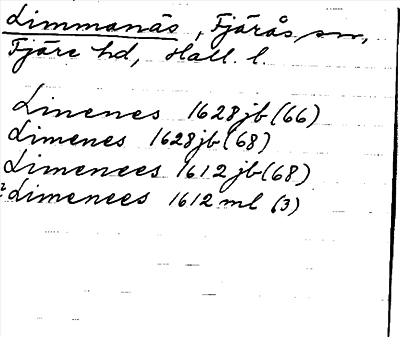 Limmanäs, Fjärås sn,
Fjäre hd, Hall. l.
Linenes 1628 jb (66)
Limenes 1628 jb (68)
Limenees 1612 jb (68)
Limenees 1612 ml (3)